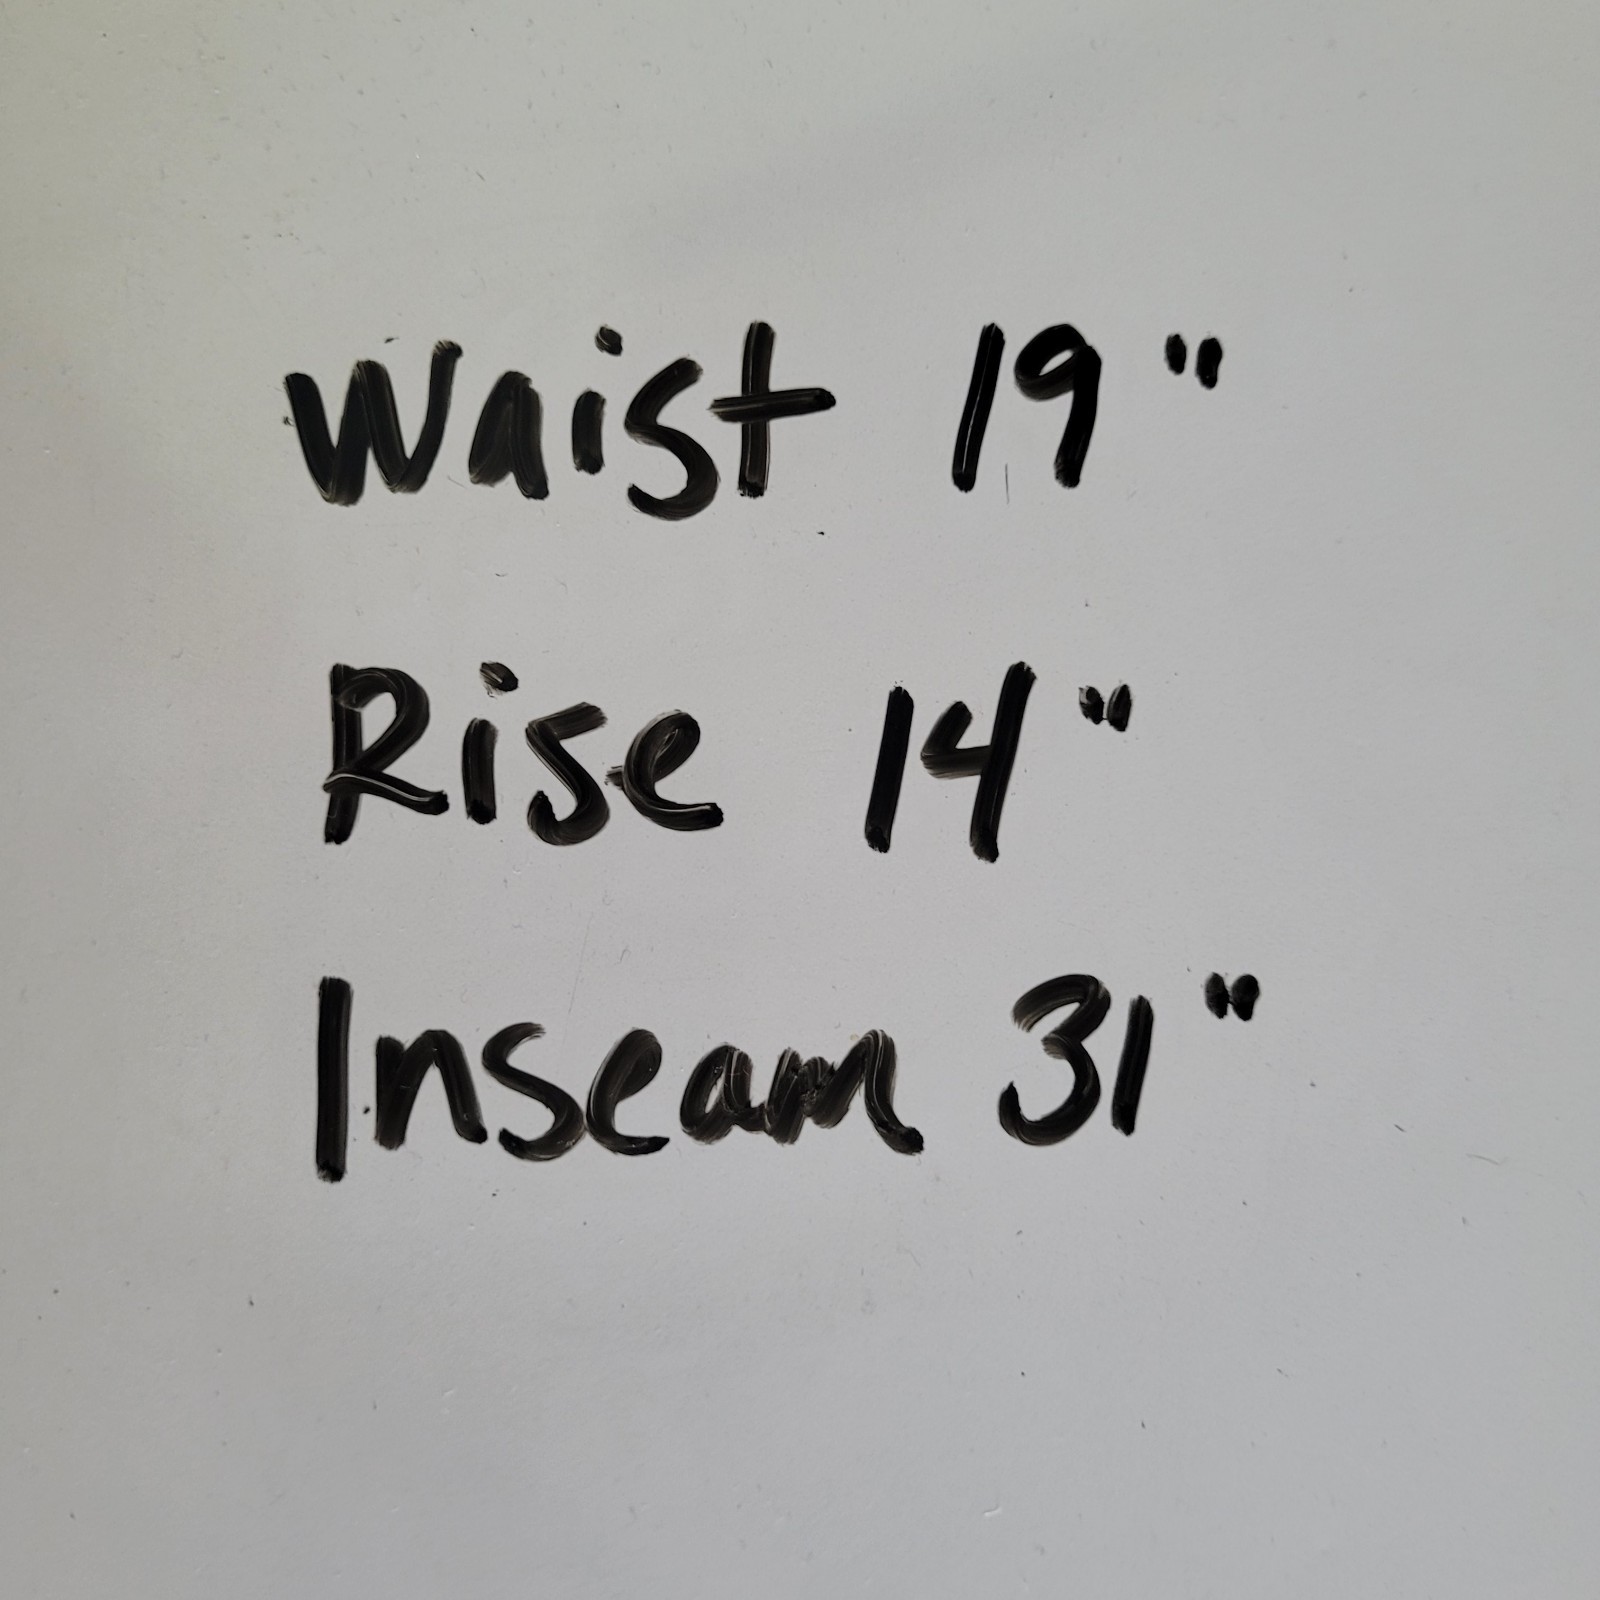 Waist 19"
Rise 14"
Inseam 31"